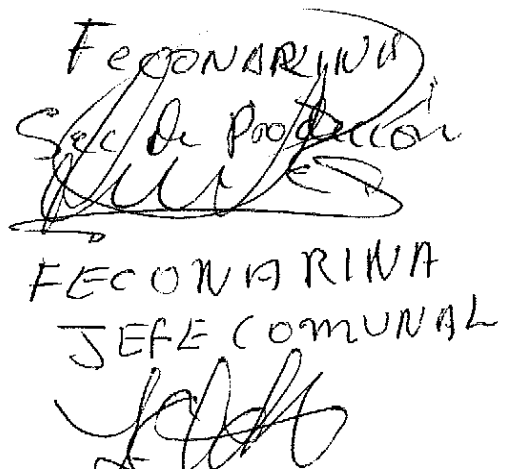 FeCONARINA
Sec De Producción
FECONARINA
JEFE COMUNAL